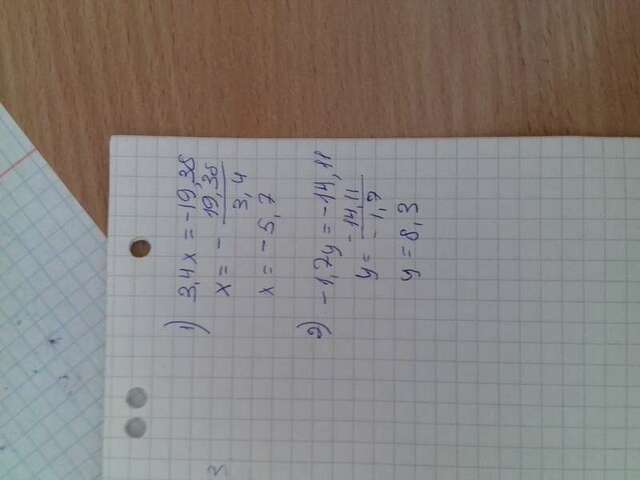 1) 3,4x = -19,38
x = - 19,38/3,4
x = - 5,7
2) -1,7y = -14,11
y = -14,11/-1,7
y = 8,3